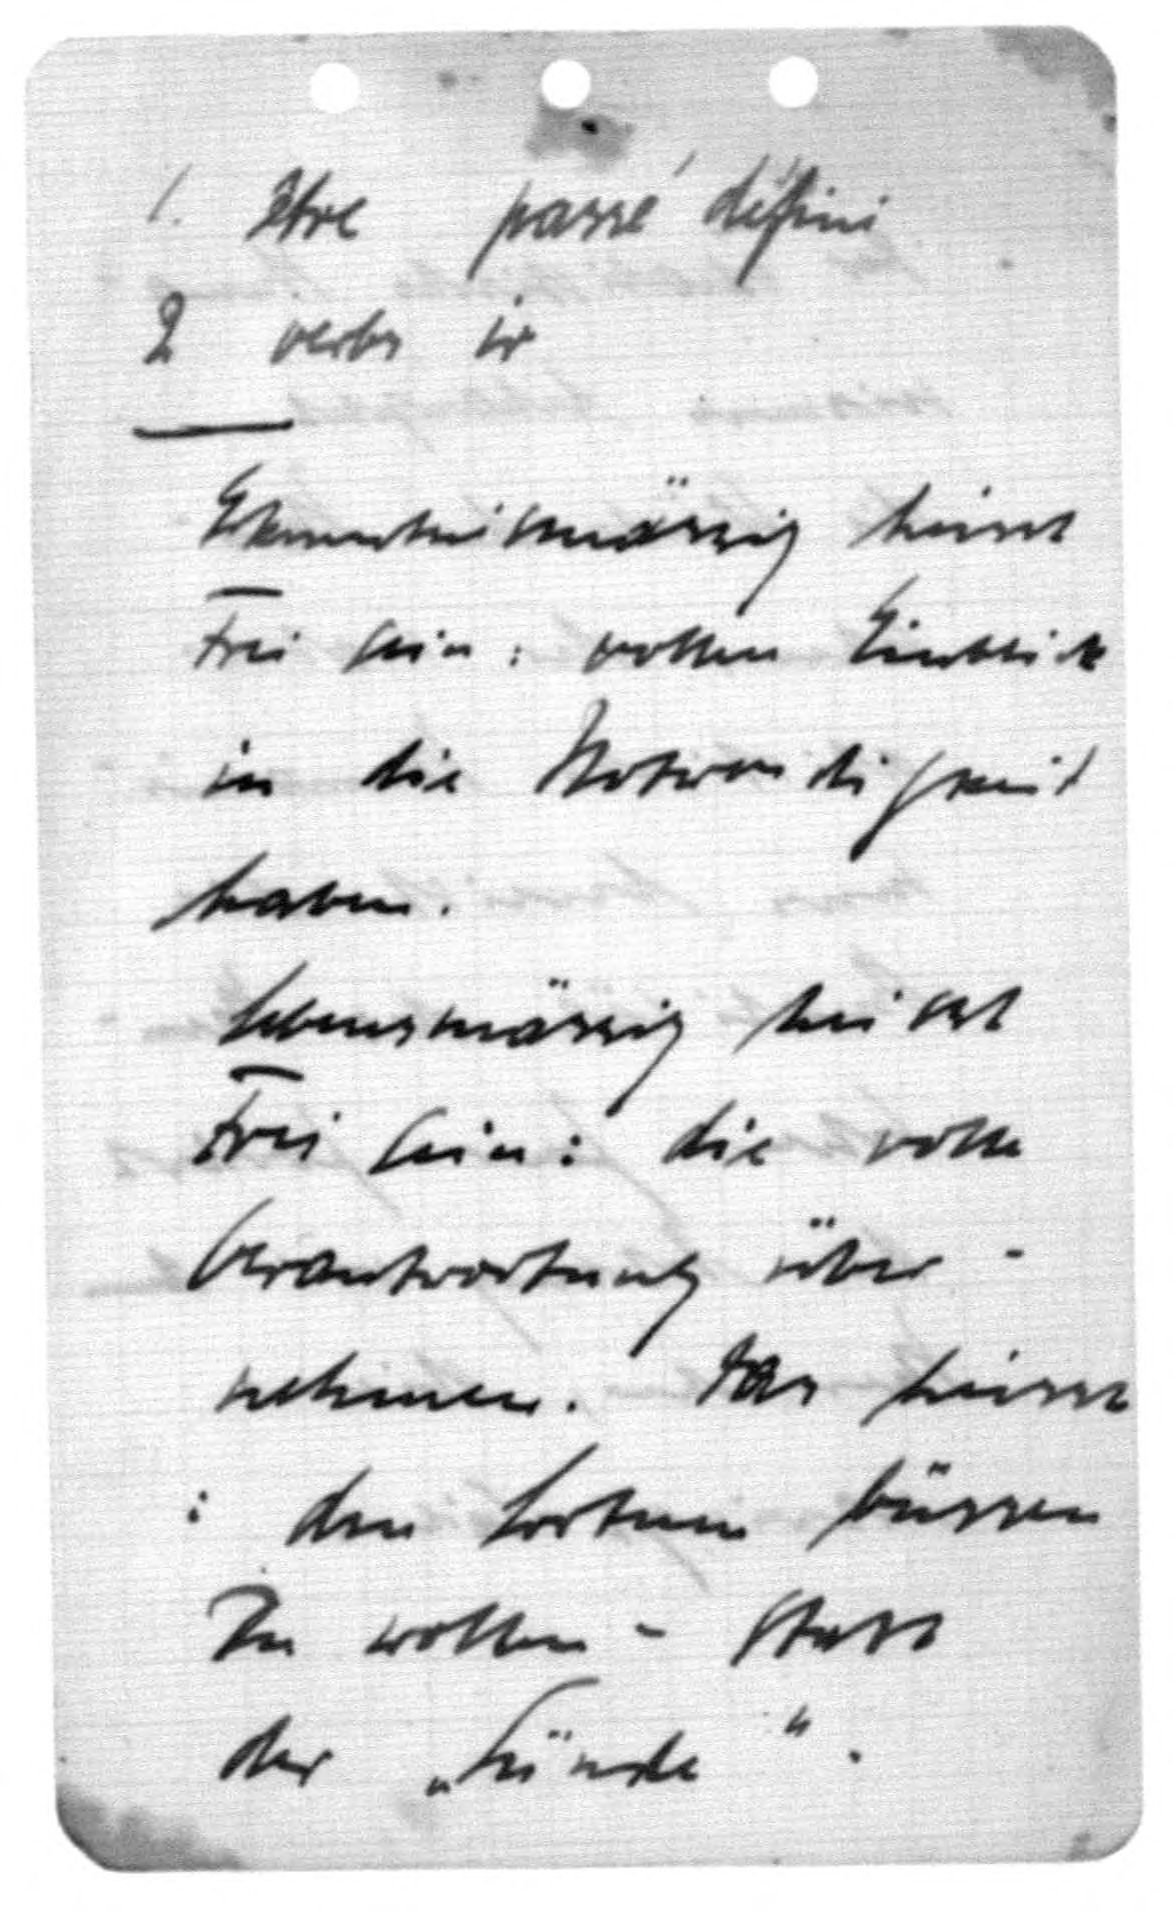 1. Être passé défini
2 verbs ir
Erkenntnismässig heisst
Frei sein: vollen Einblick
in die Notwendigkeit
haben.
Lebensmässig heisst
Frei sein: die volle
Verantwortung über-
nehmen. Das heisst
: den Irrtum büssen
Zu wollen - statt
der „Sünde".